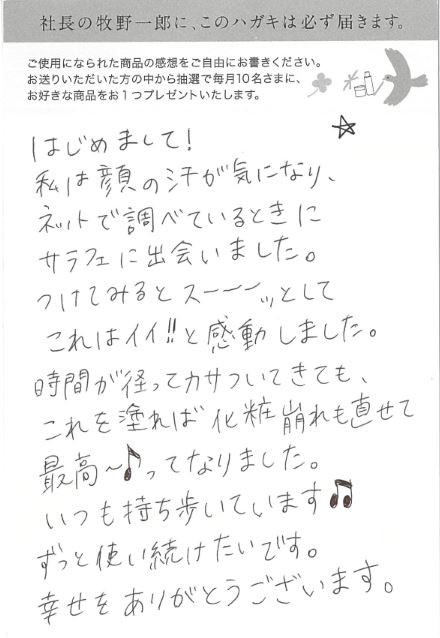 社長の牧野一郎に、このハガキは必ず届きます。
ご使用になられた商品の感想をご自由にお書きください。
お送りいただいた方の中から抽選で毎月10名さまに、
お好きな商品をお1つプレゼントいたします。
はじめまして!
私は顔の汗が気になり、
ネットで調べているときに
サラフェに出会いました。
つけてみるとスーーーッとして
これはイイ!!と感動しました。
時間が経ってカサついてきても、
これを塗れば化粧崩れも直せて
最高〜♪ってなりました。
いつも持ち歩いています♫
ずっと使い続けたいです。
幸せをありがとうございます。